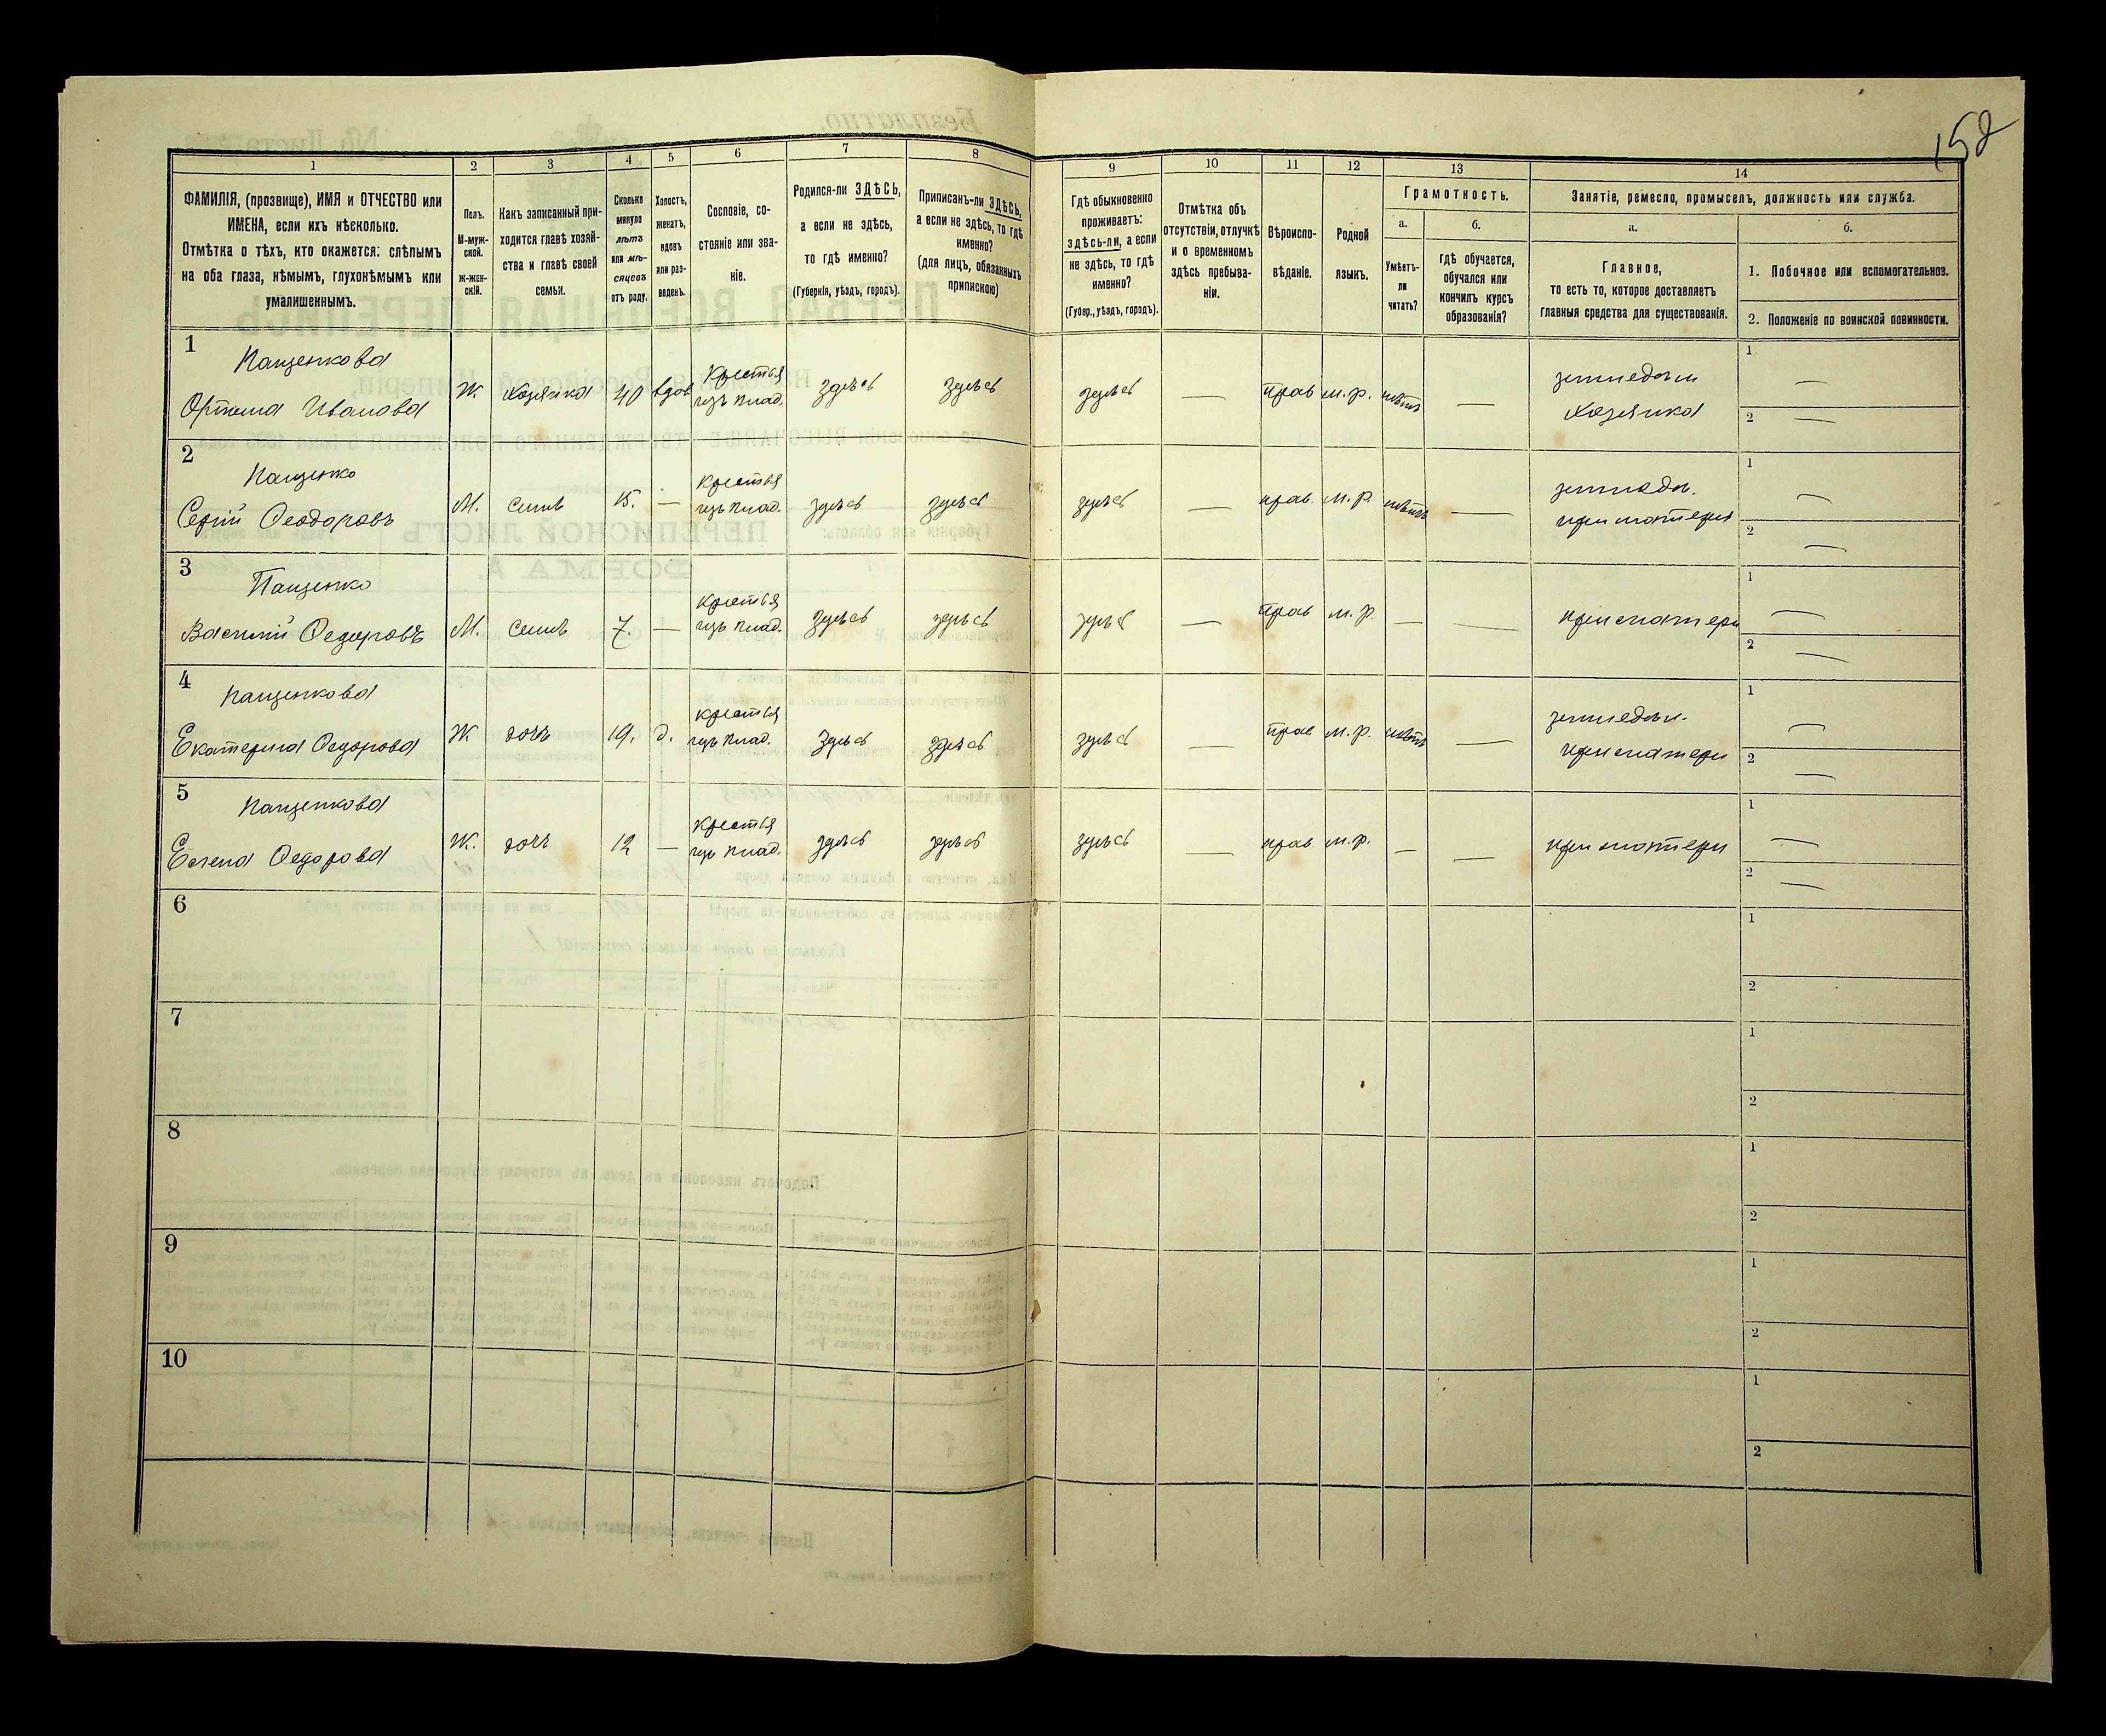 158
1 2 3 4 5 6 7 8 9 10 11 12 13 14
ФАМИЛІЯ, (прозвище), ИМЯ и ОТЧЕСТВО или
ИМЕНА, если ихъ нѣсколько.
Отмѣтка о тѣхъ, кто окажется: слѣпымъ
на оба глаза, нѣмымъ, глухонѣмымъ или
умалишеннымъ.
Полъ.
М-муж-
ской.
Ж-жен-
скій.
Какъ записанный при-
ходится главѣ хозяй-
ства и главѣ своей
семьи.
Сколько
минуло
лѣтъ
или мѣ-
сяцевъ
отъ роду.
Холостъ,
женатъ,
вдовъ
или раз-
веденъ.
Сословіе, со-
стояніе или зва-
ніе.
Родился-ли ЗДѢСЬ,
а если не здѣсь,
то гдѣ именно?
(Губернія, уѣздъ, городъ).
Приписанъ-ли ЗДѢСЬ,
а если не здѣсь, то гдѣ
именно?
(для лицъ, обязанныхъ
припискою)
Гдѣ обыкновенно
проживаетъ:
здѣсь-ли, а если
не здѣсь, то гдѣ
именно?
(Губер., уѣздъ, городъ).
Отмѣтка объ
отсутствіи, отлучкѣ
и о временномъ
здѣсь пребыва-
ніи.
Вѣроиспо-
вѣданіе.
Родной
языкъ.
Грамотность.
а.
Умѣетъ-
ли
читать?
б.
гдѣ обучается,
обучался или
кончилъ курсъ
образованія?
Занятіе, ремесло, промыселъ, должность или служба.
а.
Главное,
то есть то, которое доставляетъ
главныя средства для существованія.
б.
1. Побочное или вспомогательное.
2. Положеніе по воинской повинности.
1 Пащенкова
Ивановa Ж. Хозяйка 40 вдов Крестья здѣсь здѣсь здѣсь — прав м.р. нѣтъ — хозяйка 1 — 2 —
2 Пащенко
Сергій Феодоровъ М. сынъ 15. — Крестья здѣсь здѣсь здѣсь — прав. м.р. нѣтъ — при матери 1 — 2 —
3 Пащенко
Василій Федоровъ М. сынъ 7. — Крестья здѣсь здѣсь здѣсь — прав м.р. — — при матери 1 — 2 —
4 Пащенкова
Екатерина Федорова Ж дочь 19. д. Крестья здѣсь здѣсь здѣсь — прав м.р. нѣтъ — при матери 1 — 2 —
5 Пащенкова
Елена Федорова Ж. дочь 12 — Крестья здѣсь здѣсь здѣсь — прав м.р. — — при матери 1 — 2 —
6 1 2
7 1 2
8 1 2
9 1 2
10 1 2